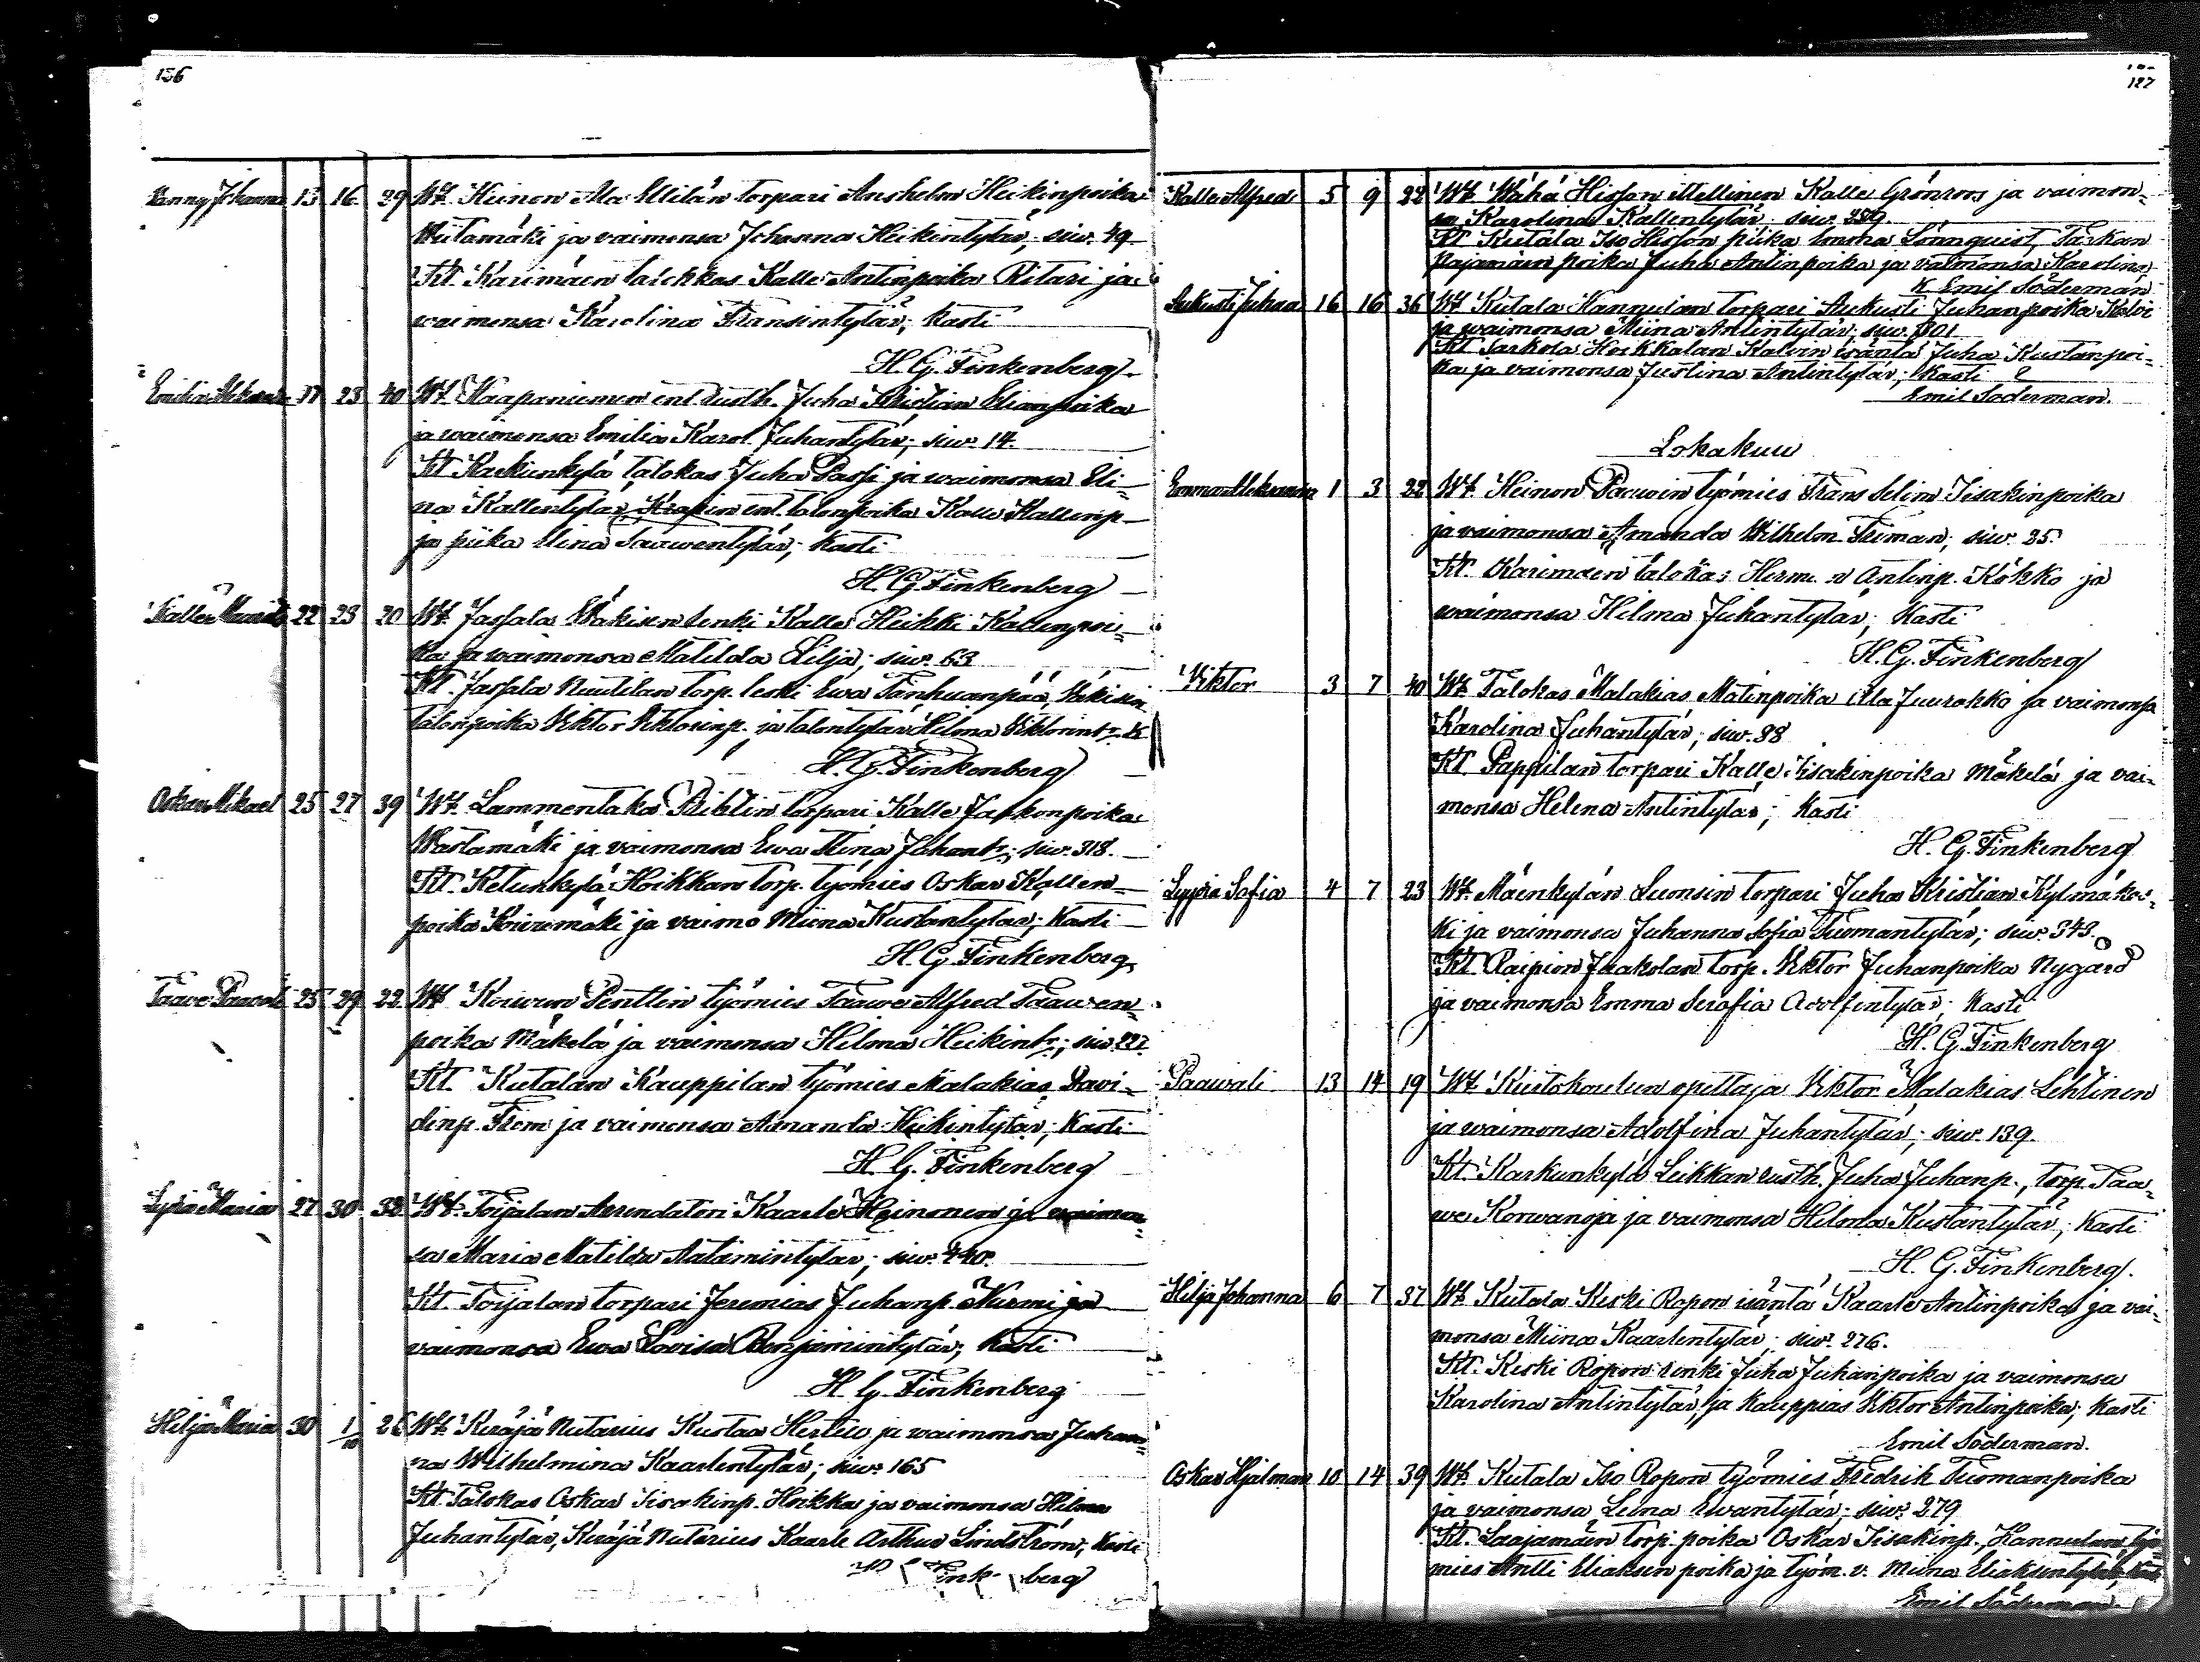 136
Fanny Johanna 13 16 29 Wt. Heinon Ala Uilän torpari Anshelm Heikinpoika
Uutamäki ja vaimonsa Johanna Heikintytär; siw. 49
Kt. Karimäen talokkas Kalle Antinpoika Ritari ja
waimonsa Karolina Fransintytär; kasti
H. G. Finkenberg
Emilia 17 23 40 Wt. Haapaniemen ent. rusth. Juha Kristian Elianpoika
ja waimonsa Emilia Karol. Juhantytär; siw. 14.
Kt. Karkunkylä talokas Juha Passi ja waimonsa Eli-
na Kallentytär, Krapin ent. talonpoika Kalle Kallenp.
ja piika Miina Taawentytär; kasti
H. G. Finkenberg
Kalle 22 23 20 Wt. Jassala Wäkisen renki Kalle Heikki Kallenpoi-
ka ja waimonsa Matilda Lilja; siw. 63
Kt. Jassala torp. leski Ewa Tanhuanpää, Wäkisen
talonpoika Viktor Viktorinp. ja talontytär Helma Viktorint:r. k
H. G. Finkenberg
Oskar Mikael 25 27 39 Wt. Lammentaka torpari Kalle Jaakonpoika
Wastamäki ja vaimonsa Ewa Stina Juhant:r; siw. 318.
Kt. Ketunkylä Hoikkan torp. työmies Oskar Kallen-
poika Koiremäki ja vaimo Miina Kustantytär; kasti
H. G. Finkenberg
Taave Paavali 25 29 22 Wt. Koiwun Penttin työmies Taawe Alfred Taawen-
poika Mäkelä ja vaimonsa Hilma Heikint:r; siw. 227.
Kt. Kutalan Kauppilan työmies Malakias Davi-
dinp. Frem ja vaimonsa Amanda Heikintytär; Kasti
H. G. Finkenberg
Lydia Maria 27 30 32 Wt. Toijalan Arrendatori Kaarle Heinonen ja vaimon-
sa Maria Matilda Aatamintytär; siw. 440.
Kt. Toijalan torpari Jeremias Juhanp. Nurmi ja
vaimonsa Ewa Lovisa Benjamintytär; Kasti
H. G. Finkenberg
Hilja Maria 30 1/10 26 Wt. Keräjä Nutarius Kustaa Hertew ja waimonsa Johan-
na Wilhelmina Kaarlentytär; siw. 165
Kt. Talokas Oskar Iisakinp. Hoikka ja vaimonsa Hilma
Juhantytär, Keräjä Nutarius Kaarle Arthur Lindström; Kasti
Fink berg
127
Kalle Alfred 5 9 22 Wt. Wähä Hisson itsellinen Kalle Grönroos ja vaimon-
sa Karolina Kallentytär siw. 289.
Kt. Kutala Iso Hisson piika Emma Lönnquist, Tarkan
Pajamäen poika Juha Antinpoika ja vaimonsa Karolina
K. Emil Söderman
Aukusti Juhaa 16 16 36 Wt. Kutala Hannulan torpari Aukusti Juhanpoika Kalvi
ja waimonsa Miina Antintytär; siw. 301
Kt. Sarkola Hoikkalan Kalvin isäntä Juha Kustanpoi-
ka ja vaimonsa Justina Antintytär; Kasti
Emil Söderman.
Lokakuu
Emma Aleksandra 1 3 22 Wt. Heinon Paavoin työmies Frans Selim Iisakinpoika
ja vaimonsa Amanda Wilhelm. Friman; siw. 25.
Kt. Karimäen talokas Herm. Antinp. Kökkö ja
waimonsa Hilma Juhantytär; Kasti
H. G. Finkenberg
Viktor 3 7 40 Wt. Talokas Malakias Matinpoika Ala Juurakko ja vaimonsa
Karolina Juhantytär; siw. 88
Kt. Pappilan torpari Kalle Iisakinpoika Mäkelä ja vai-
monsa Helena Antintytär; Kasti
H. G. Finkenberg
Lyydia Sofia 4 7 23 Wt. Mäenkylän Luonsin torpari Juha Kristian Kylmäkos-
ki ja vaimonsa Juhanna Sofia Tuomantytär; siw. 343.
Kt. Raipion Jaakolan torp. Viktor Juhanpoika Nygård
ja vaimonsa Emma Serafia Adolfintytär; Kasti
H. G. Finkenberg
Paawali 13 14 19 Wt. Kiertokoulun opettaja Viktor Malakias Lehtinen
ja waimonsa Adolfina Juhantytär; siw. 139.
Kt. Karkunkylä Leikkan rusth. Juha Juhanp., torp. Taa-
we Korwanoja ja vaimonsa Hilma Kustantytär; Kasti
H. G. Finkenberg.
Hilja Johanna 6 7 37 Wt. Kutala Keski Ropon isäntä Kaarle Antinpoika ja vai-
monsa Miina Kaarlentytär; siw. 276.
Kt. Keski Ropon renki Juha Juhanpoika ja vaimonsa
Karolina Antintytär, ja kauppias Viktor Antinpoika; Kasti
Emil Söderman.
Oskar Hjalmar 10 14 39 Wt. Kutala Iso Ropon työmies Fredrik Tuomanpoika
ja vaimonsa Leena Ewantytär; siw. 279
Kt. Laajamäen torp. poika Oskar Iisakinp., Hannulan työ-
mies Antti Eliaksen poika ja työm. v. Miina Eliaksentytär; Kasti
Emil Söderman.